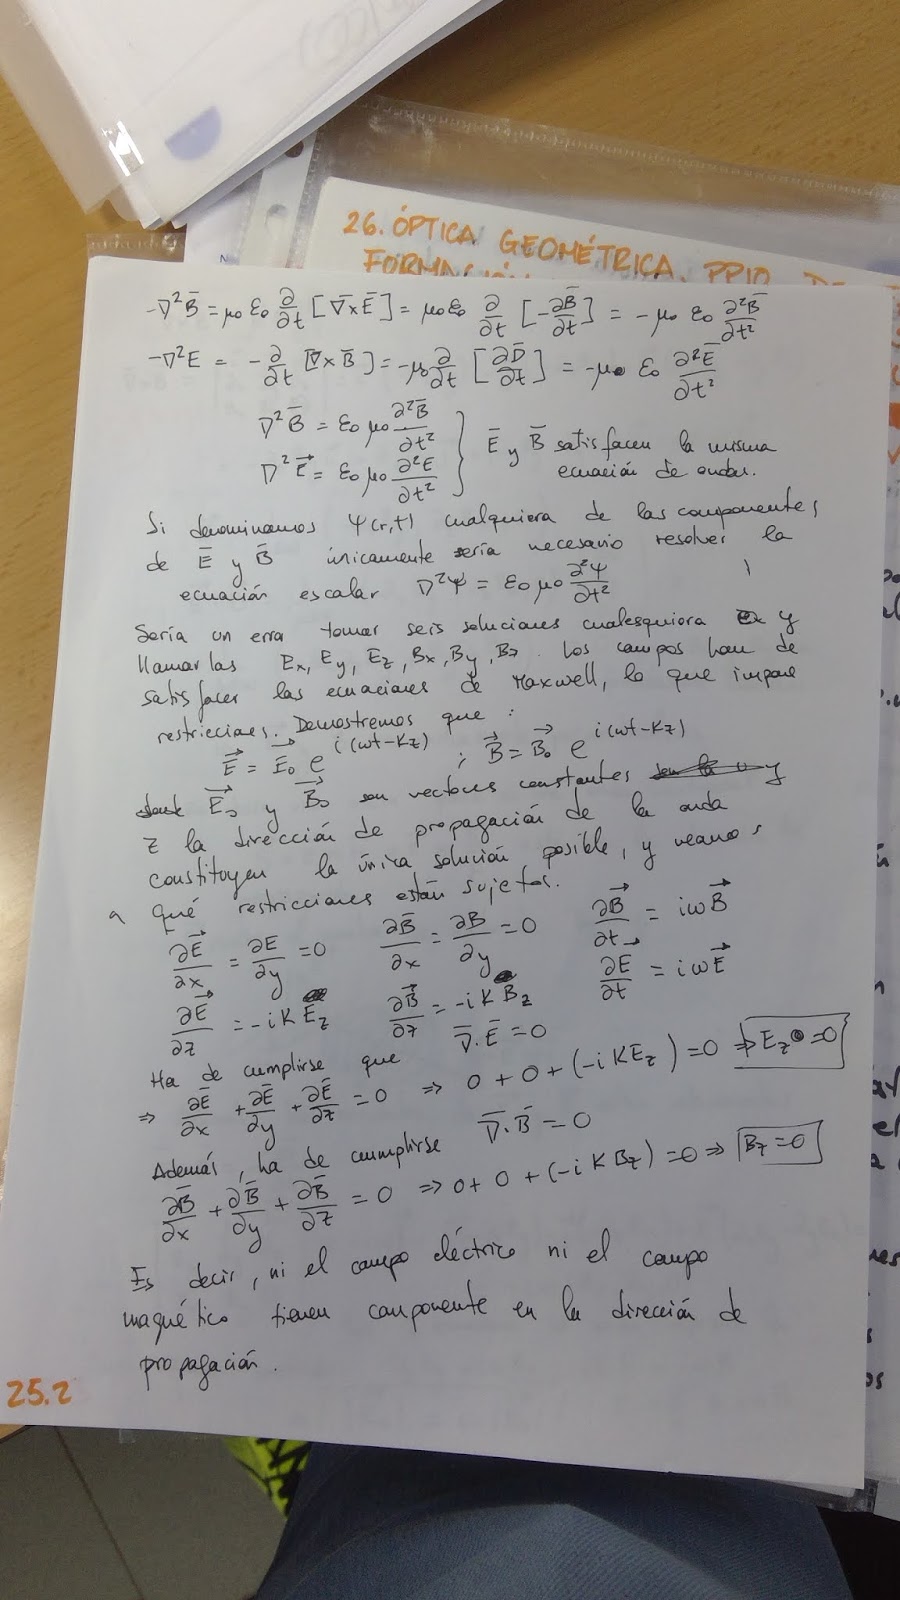 26. ÓPTICA GEOMÉTRICA. PPIO DE
FORMACIÓN
-∇²B̄ = μ₀ ε₀ ∂/∂t [∇̄×Ē] = μ₀ε₀ ∂/∂t [-∂B̄/∂t] = -μ₀ ε₀ ∂²B̄/∂t²
-∇²E = -∂/∂t [∇̄×B̄] = -μ₀ ∂/∂t [∂D̄/∂t] = -μ₀ ε₀ ∂²Ē/∂t²
∇²B̄ = ε₀ μ₀ ∂²B̄/∂t²
∇²E⃗ = ε₀ μ₀ ∂²E/∂t²
} Ē y B̄ satisfacen la misma
ecuación de ondas.
Si denominamos Ψ(r,t) cualquiera de las componentes
de Ē y B̄ únicamente sería necesario resolver la
ecuación escalar ∇²Ψ = ε₀ μ₀ ∂²Ψ/∂t²
Sería un error tomar seis soluciones cualesquiera y
llamarlas Ex, Ey, Ez, Bx, By, Bz. Los campos han de
satisfacer las ecuaciones de Maxwell, lo que impone
restricciones. Demostremos que:
E⃗ = E⃗₀ e^{i(ωt-Kz)} ; B⃗ = B⃗₀ e^{i(ωt-Kz)}
donde E⃗₀ y B⃗₀ son vectores constantes y
z la dirección de propagación de la onda
constituyen la única solución posible, y veamos
a qué restricciones están sujetos.
∂E⃗/∂x = ∂E/∂y = 0 ∂B̄/∂x = ∂B/∂y = 0 ∂B⃗/∂t = iωB⃗
∂E⃗/∂z = -iKEz ∂B⃗/∂z = -iKBz ∂E⃗/∂t = iωE⃗
Ha de cumplirse que ∇̄·Ē = 0
⇒ ∂Ē/∂x + ∂Ē/∂y + ∂Ē/∂z = 0 ⇒ 0 + 0 + (-iKEz) = 0 ⇒ Ez = 0
Además, ha de cumplirse ∇̄·B̄ = 0
∂B̄/∂x + ∂B̄/∂y + ∂B̄/∂z = 0 ⇒ 0 + 0 + (-iKBz) = 0 ⇒ Bz = 0
Es decir, ni el campo eléctrico ni el campo
magnético tienen componente en la dirección de
propagación.
25.2